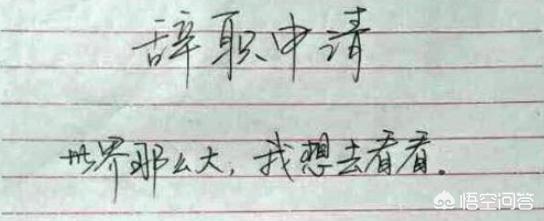 辞职申请
世界那么大，我想去看看。
悟空问答